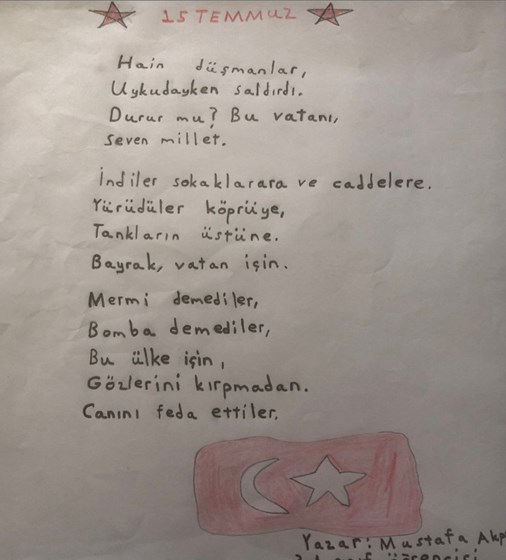 15 TEMMUZ
Hain düşmanlar,
Uykudayken saldırdı.
Durur mu? Bu vatanı,
Seven millet.
İndiler sokaklarara ve caddelere.
Yürüdüler köprüye,
Tankların üstüne.
Bayrak, vatan için.
Mermi demediler,
Bomba demediler,
Bu ülke için,
Gözlerini kırpmadan.
Canını feda ettiler.
Yazar: Mustafa